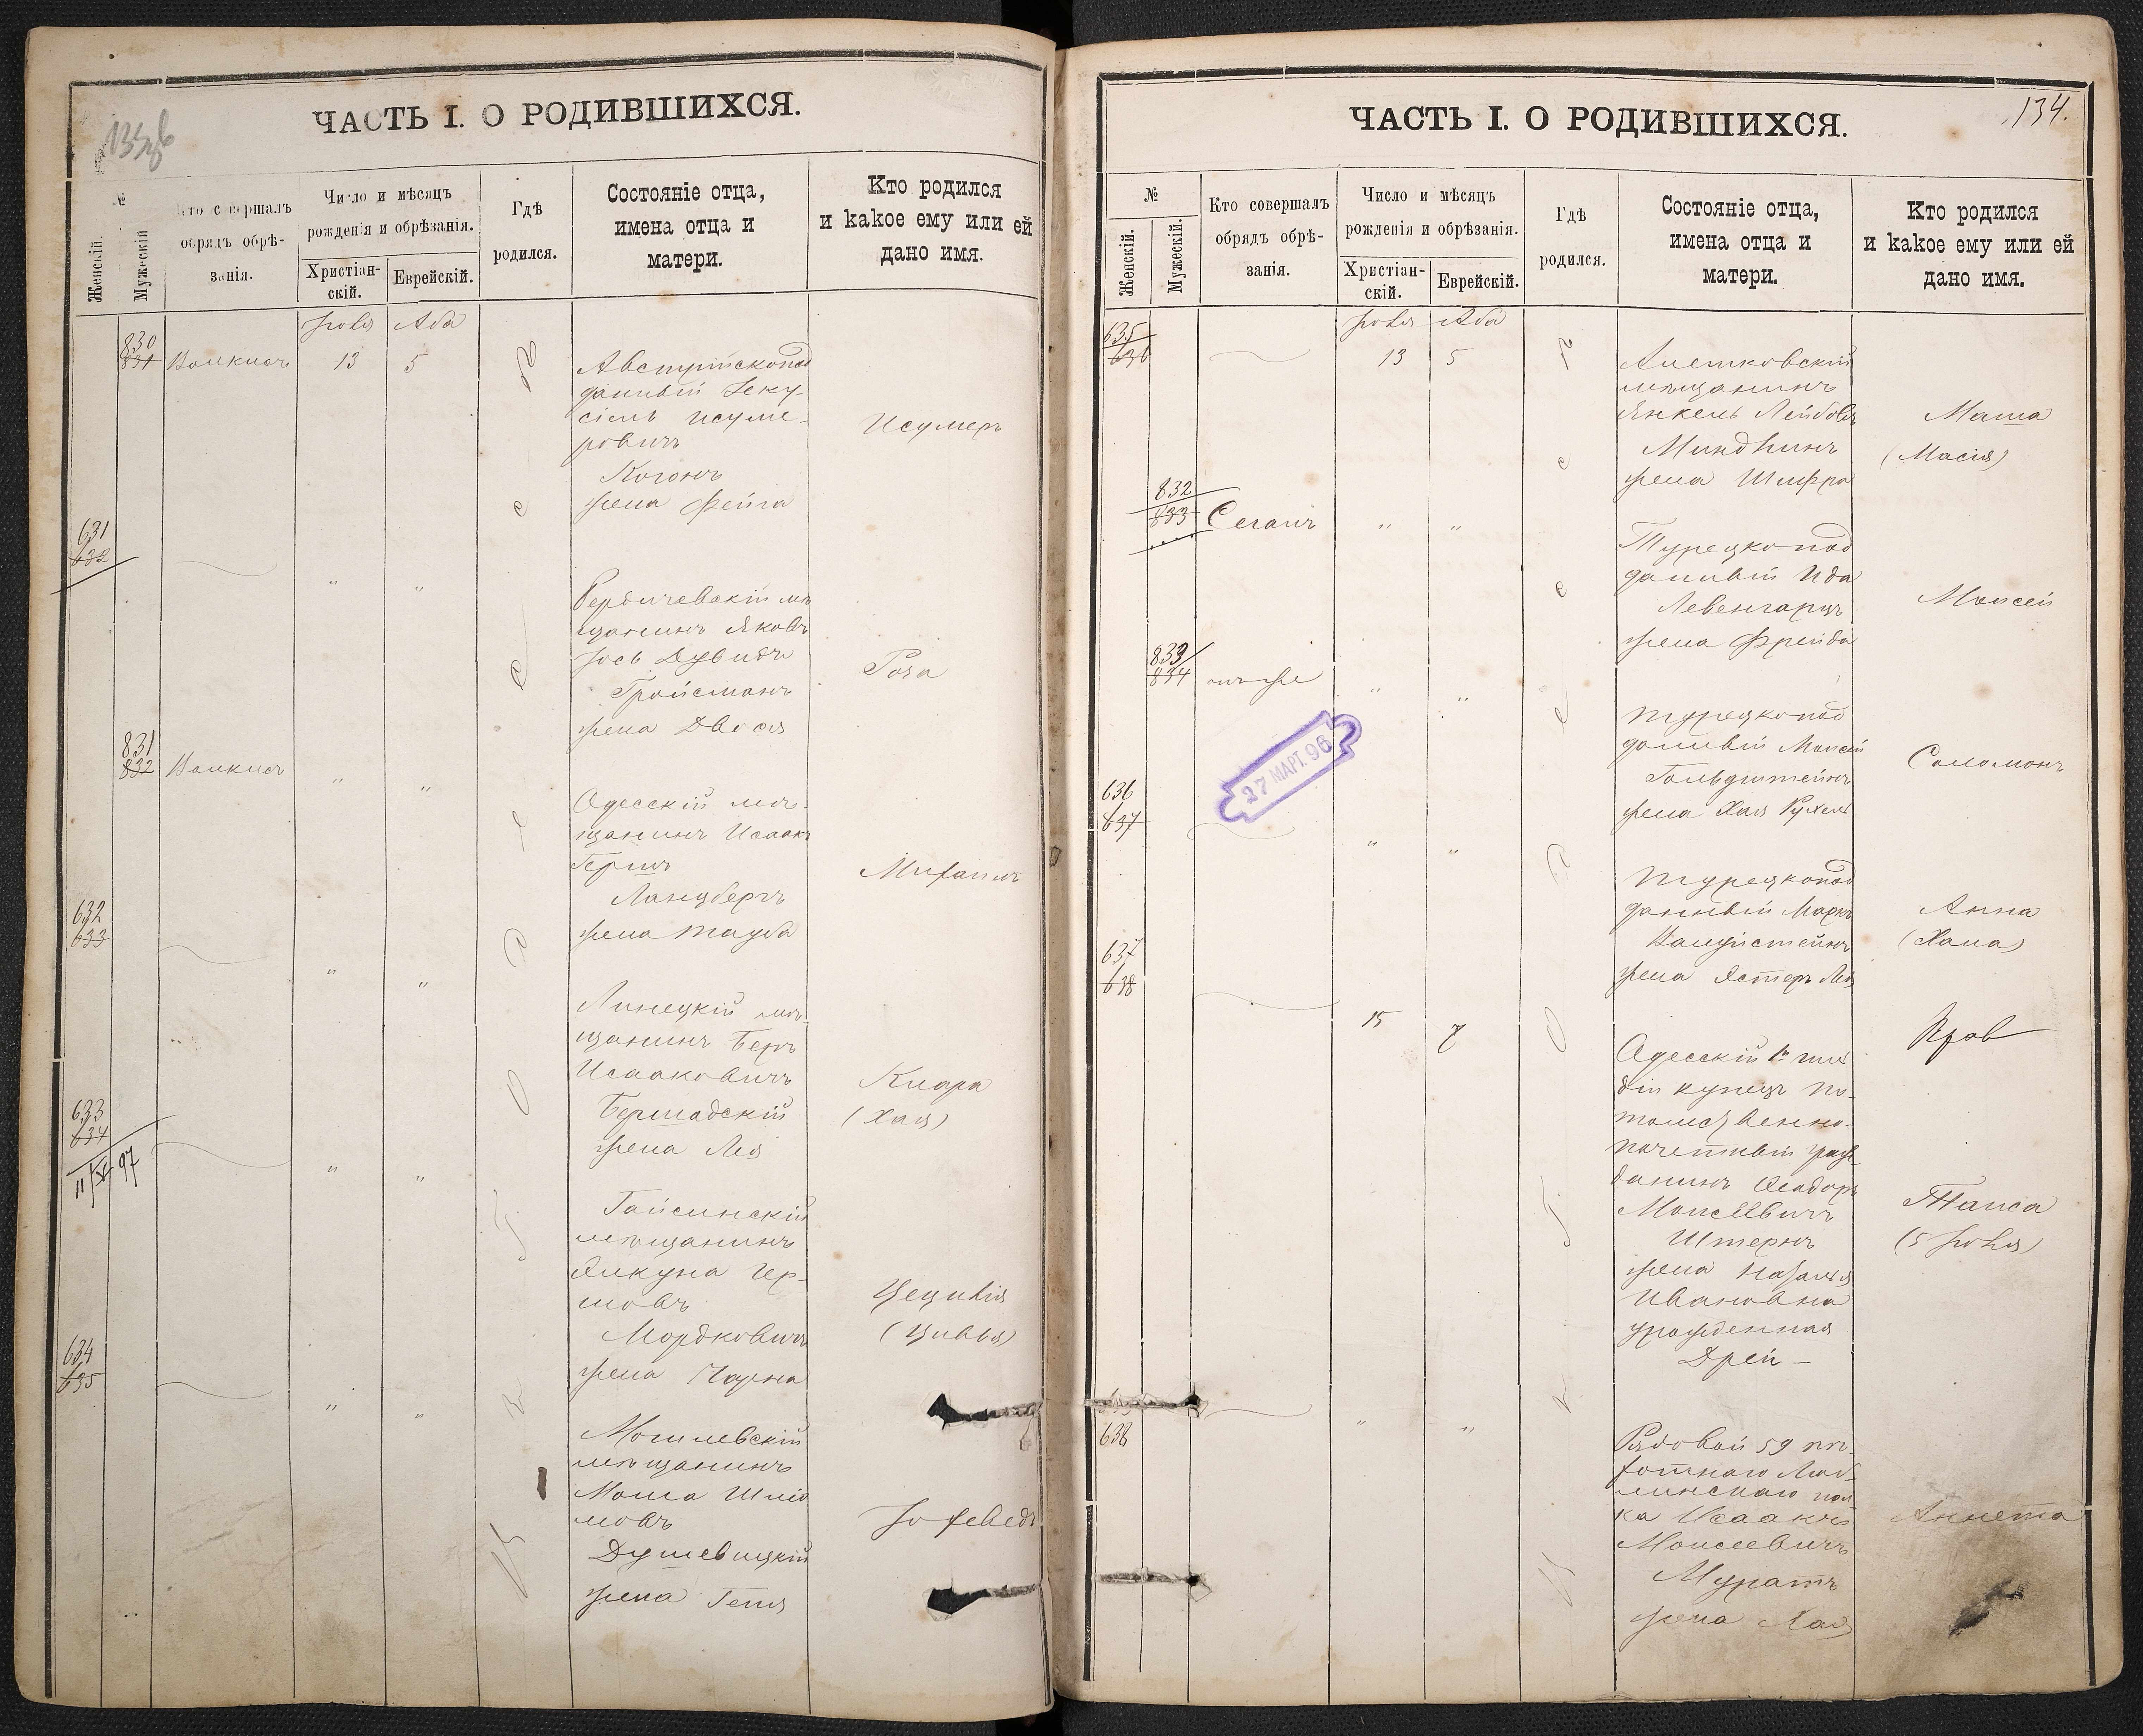 ЧАСТЬ I. О РОДИВШИХСЯ.
№
Женскій.
Мужескій
Кто совершалъ
обрядъ обрѣ-
занія.
Число и мѣсяцъ
рожденія и обрѣзанія.
Христіан-
скій.
Еврейскій.
Гдѣ
родился.
Состояніе отца,
имена отца и
матери.
Кто родился
и какое ему или ей
дано имя.
Іюля Ава
830
831
13 5
Австрійскопод
данный Іеку-
сіель Исуме-
рович
Когонъ
жена Фейга
Исумеръ
631
632
" "
Бердичевскій мѣ
щанинъ Яковъ
Іось Дувидъ
Гройсманъ
жена Двося
Роза
831
832
" "
Одесскій мѣ-
щанинъ Исаакъ
Гершъ
Ланцбергъ
жена Тауба
Михаилъ
632
633
" "
Липецкій мѣ-
щанинъ Беръ
Исааковичъ
Бершадскій
жена Лея
Клара
(Хая)
633
634
" "
Гайсинскій
мѣщанинъ
Мордковичъ
жена
Цецилія
(Цивья)
634
635
" "
Могилевскій
мѣщанинъ
Мошка Шліо
мовъ
Душевицкій
жена Геня
Іохеведъ
ЧАСТЬ I. О РОДИВШИХСЯ.
134.
№
Женскій.
Мужескій.
Кто совершалъ
обрядъ обрѣ-
занія.
Число и мѣсяцъ
рожденія и обрѣзанія.
Христіан-
скій.
Еврейскій.
Гдѣ
родился.
Состояніе отца,
имена отца и
матери.
Кто родился
и какое ему или ей
дано имя.
Іюля Ава
635
636
13 5
мѣщанинъ
Янкель Лейбовъ
Миндлинъ
жена Шифра
Маша
(Масія)
832
833
Сеганъ " "
Турецкопод
данный Ида
Левенгарцъ
жена Фрейда
Моисей
833
834
онъ же " "
Турецкопод
данный Моисей
Гольдштейнъ
жена Хая Рухель
Соломонъ
27 МАРТ. 96
636
637
" "
Турецкопод
данный Маркъ
жена Эстеръ Лея
Анна
(Хана)
637
638
15 7
Одесскій 1й гиль
діи купецъ по-
томственно-
почетный граж-
данинъ Ѳеодоръ
Моисеевичъ
Штернъ
жена Наталья
Ивановна
урожденная
Дрей-
Таиса
(5 Іюля)
638
" "
Рядовой 59 пѣ-
хотнаго Люб-
линскаго пол-
ка Исаакъ
Моисеевичъ
Муратъ
жена Хая
Аннета